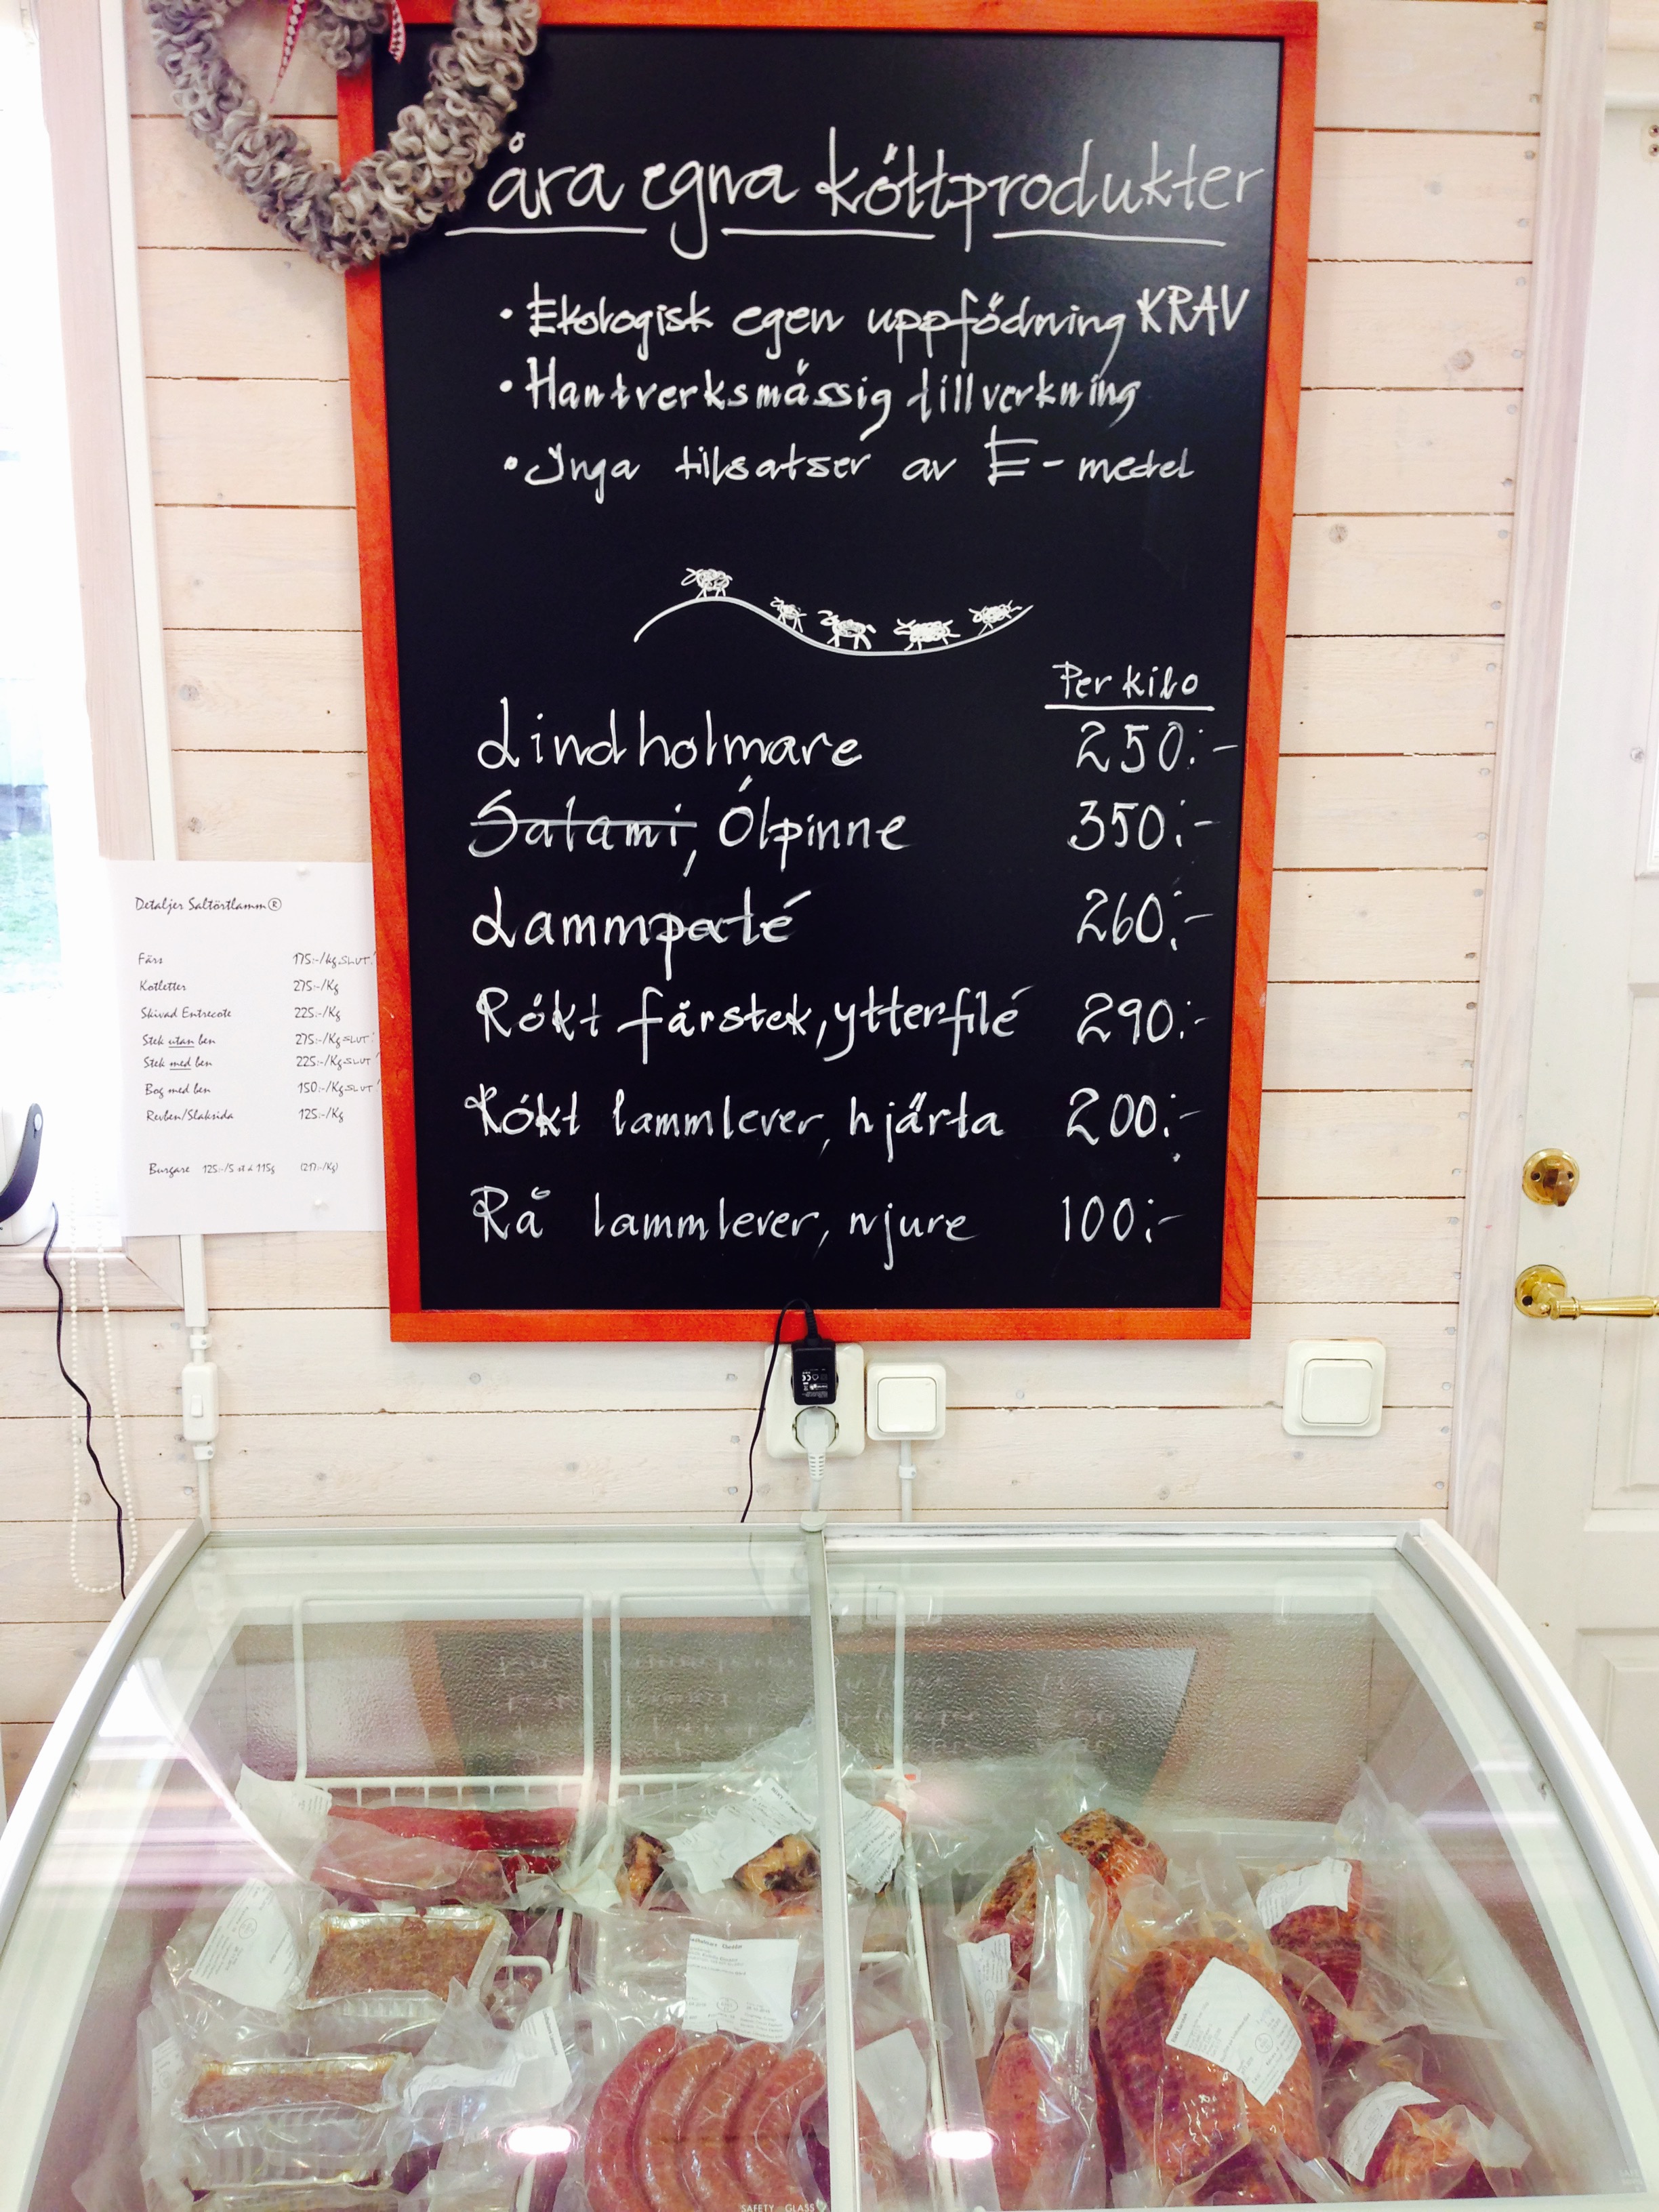 åra egna köttprodukter
• Ekologisk egen uppfödning KRAV
• Hantverksmässig tillverkning
• Inga tillsatser av E-medel
Per kilo
Lindholmare 250:-
Salami, Ölpinne 350:-
Lammpaté 260:-
Rökt fårstek, ytterfilé 290:-
Rökt lammlever, hjärta 200:-
Rå lammlever, njure 100:-
Detaljer Saltörtlamm®
Färs 175:-/kg SLUT!
Kotletter 275:-/Kg
Skivad Entrecote 225:-/Kg
Stek utan ben 275:-/Kg SLUT!
Stek med ben 225:-/Kg SLUT!
Bog med ben 150:-/Kg SLUT!
Revben/Slaksida 125:-/Kg
Burgare 125:-/5 st á 115g (217:-/Kg)
SAFETY GLASS